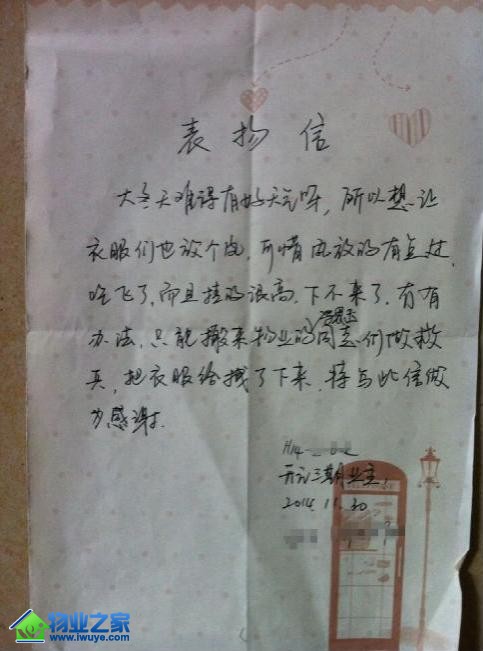 表扬信
大冬天难得有好天气呀，所以想让
衣服们也放个风，可惜风放的有点过，
吃飞了，而且挂的很高，下不来了，有有
办法，只能搬来物业的同志们做救
兵，把衣服给拽了下来，特写此信做
为感谢。
H14-
开元三期业主
2014.11.30
物业之家
www.iwuye.com